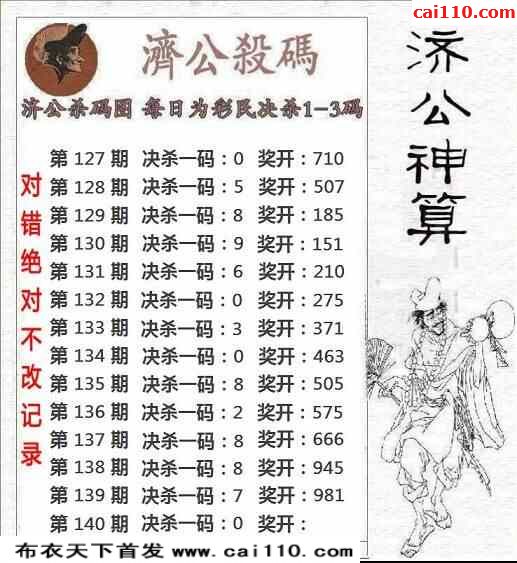 cai110.com
濟公殺碼
济公杀码图 每日为彩民决杀1-3码
第 127 期 决杀一码:0 奖开:710
第 128 期 决杀一码:5 奖开:507
第 129 期 决杀一码:8 奖开:185
第 130 期 决杀一码:9 奖开:151
第 131 期 决杀一码:6 奖开:210
第 132 期 决杀一码:0 奖开:275
第 133 期 决杀一码:3 奖开:371
第 134 期 决杀一码:0 奖开:463
第 135 期 决杀一码:8 奖开:505
第 136 期 决杀一码:2 奖开:575
第 137 期 决杀一码:8 奖开:666
第 138 期 决杀一码:8 奖开:945
第 139 期 决杀一码:7 奖开:981
第 140 期 决杀一码:0 奖开:
对错绝对不改记录
济公神算
布衣天下首发 www.cai110.com